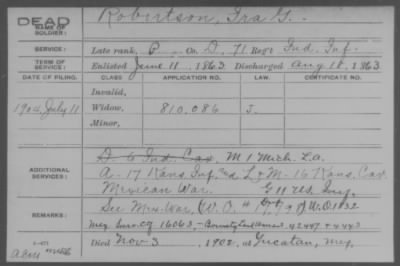 DEAD
NAME OF SOLDIER:
Robertson, Ira G.
SERVICE:
Late rank, P, Co. D, 71 Reg't Ind. Inf.
TERM OF SERVICE:
Enlisted June 11, 1863. Discharged Aug 18, 1863
DATE OF FILING. CLASS. APPLICATION NO. LAW. CERTIFICATE NO.
Invalid,
1904, July 11 Widow, 810,086 J.
Minor,
D. 6 Ind. Cav, M 1 Mich. L.A.
ADDITIONAL SERVICES:
A. 17 Kans. Inf. L & M. 16 Kans. Cav.
Mexican War. G 11 US. Inf.
REMARKS:
See Mex. War, W.O. W.O. 1832
Mex. 16063, Bounty Land 42447
Died Nov. 3, 1902, at Yucatan, Mex.